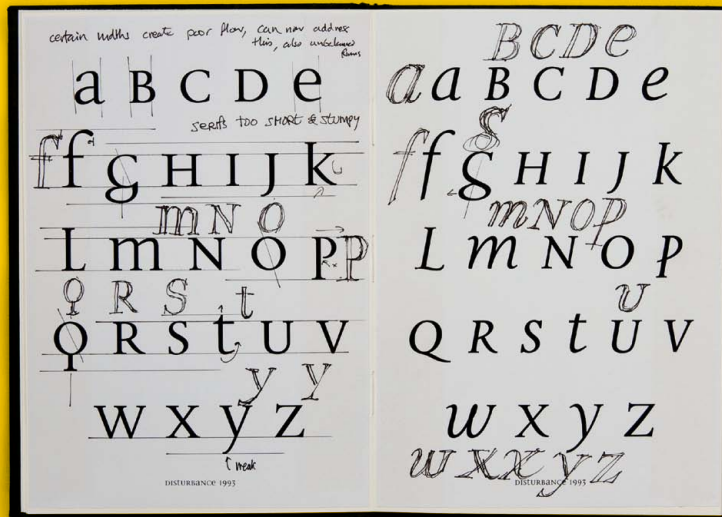 certain widths create poor flow, can now address
this, also unbalanced
forms
a B C D e
SERIFS TOO SHORT & STUMPY
f f g H I J k
m N O
L m N O P P
Q R S t
Q R S t U V
y y
W X y Z
weak
DISTURBANCE 1993
B C D e
a a B C D e
g
f f g H I J k
m N O p
L m N O p
U
Q R S t U V
w x y z
w x x y z
DISTURBANCE 1993